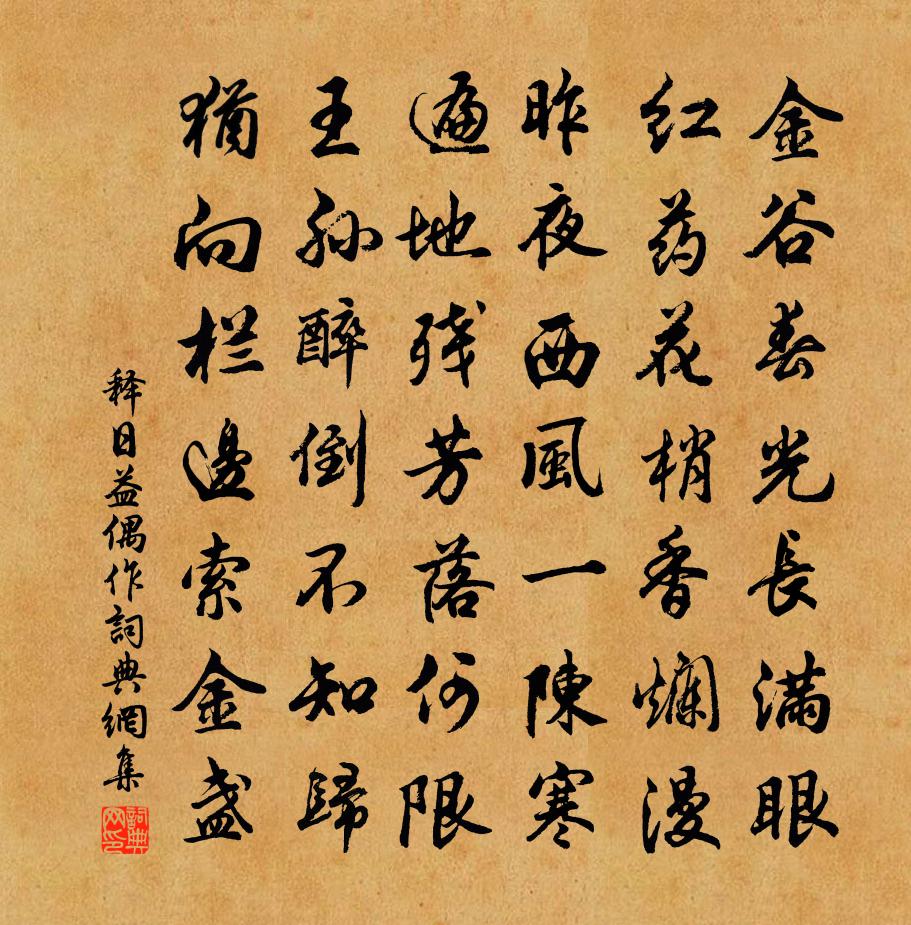 金谷春光長满眼
红药花梢香斓漫
昨夜西風一陳寒
遍地残芳落何限
王孙醉倒不知歸
猶向栏邊索金盏
释日益偶作詞典網集
詞典网印